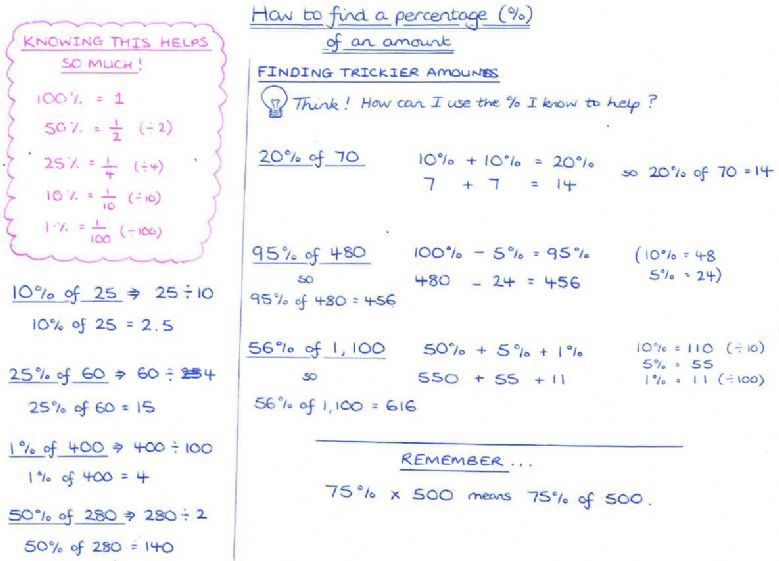 How to find a percentage (%)
of an amount
KNOWING THIS HELPS
SO MUCH!
100% = 1
50% = 1/2 (÷2)
25% = 1/4 (÷4)
10% = 1/10 (÷10)
1% = 1/100 (÷100)
10% of 25 ⇒ 25÷10
10% of 25 = 2.5
25% of 60 ⇒ 60 ÷ 4
25% of 60 = 15
1% of 400 ⇒ 400÷100
1% of 400 = 4
50% of 280 ⇒ 280÷2
50% of 280 = 140
FINDING TRICKIER AMOUNTS
Think! How can I use the % I know to help?
20% of 70 10% + 10% = 20% so 20% of 70 = 14
7 + 7 = 14
95% of 480 100% - 5% = 95% (10% = 48
so 480 - 24 = 456 5% = 24)
95% of 480 = 456
56% of 1,100 50% + 5% + 1% 10% = 110 (÷10)
so 550 + 55 + 11 5% = 55
1% = 11 (÷100)
56% of 1,100 = 616
REMEMBER...
75% x 500 means 75% of 500.